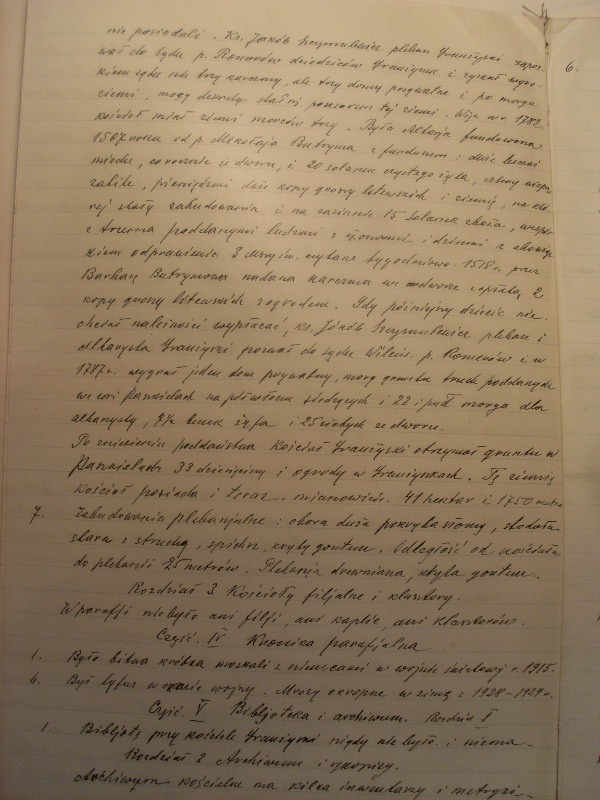 6.
nie posiadali. Ks. Jakób Szymulewicz pleban Traużyski zapoz-
wał do sądu p. Romerów dziedziców Traużynek i zyskał wyro-
kiem sądu nie trzy karczmy, ale trzy domy prywatne i po morgu
ziemi, mogą dawnoty stałości tej ziemi. Więc w r. 1782
kościół miał ziemi morgów trzy. Była Altarja fundowana
1507 roku od p. Mikołaja Butryma z funduszem: dwie beczki
miodu, corocznie ze dworu, i 20 solanek czystego żyta, cztery wieprze
zabite, pieniędzmi dwie kopy groszy litewskich i ziemię, na któ-
rej stały zabudowania i na zasianie 15 solanek zboża, wespół
z trzema poddanymi ludźmi z żonami i dziećmi z obowiąz-
kiem odprawienia 3 Mszy św. czytane tygodniowo. 1518 r. przez
Barbarę Butrymową nadana karczma we dworze z opłatą 2
kopy groszy litewskich z ogrodem. Gdy późniejszy dziedzic nie
chciał należności wypłacać, ks. Jakób Szymulewicz pleban i
Altarysta Traużyski pozwał do sądu Wileńs. p. Romerów i w
1787 r. wygrał jeden dom prywatny, morg gruntu trzech poddanych
we wsi Panasielach na półwłoku siedzących i 22 i pół morga dla
altarysty, 9½ beczek żyta i 25 złotych ze dworu.
Po zniesieniu poddaństwa kościół Traużyski otrzymał gruntu w
Panasielach 33 dziesięciny i ogrody w Traużynkach. Tę ziemię
kościół posiada i teraz. mianowicie. 41 hektar i 1750 metr.
7. Zabudowania plebanjalne: obora duża pokryta słomą, stodoła
stara z strzechą, spichrz, kryty gontem. Odległość od kościoła
do plebanii 25 metrów. Plebanja drewniana, kryta gontem.
Rozdział 3 Kościoły filjalne i klasztory.
W parafji nie było ani filji, ani kaplic, ani klasztorów.
Część. IV Kronika parafjalna
1. Była bitwa krótka moskali z niemcami w wojnie światowej r. 1915.
6. Był tyfus w czasie wojny. Mrozy okropne w zimę z 1928-1929 r.
Część V Bibljoteka i archiwum. Rozdział I
1. Bibljoteki przy kościele Traużyskim nigdy nie było i niema.
Rozdział 2 Archiwum i
Archiwum kościelne ma kilka inwentarzy i metryki-